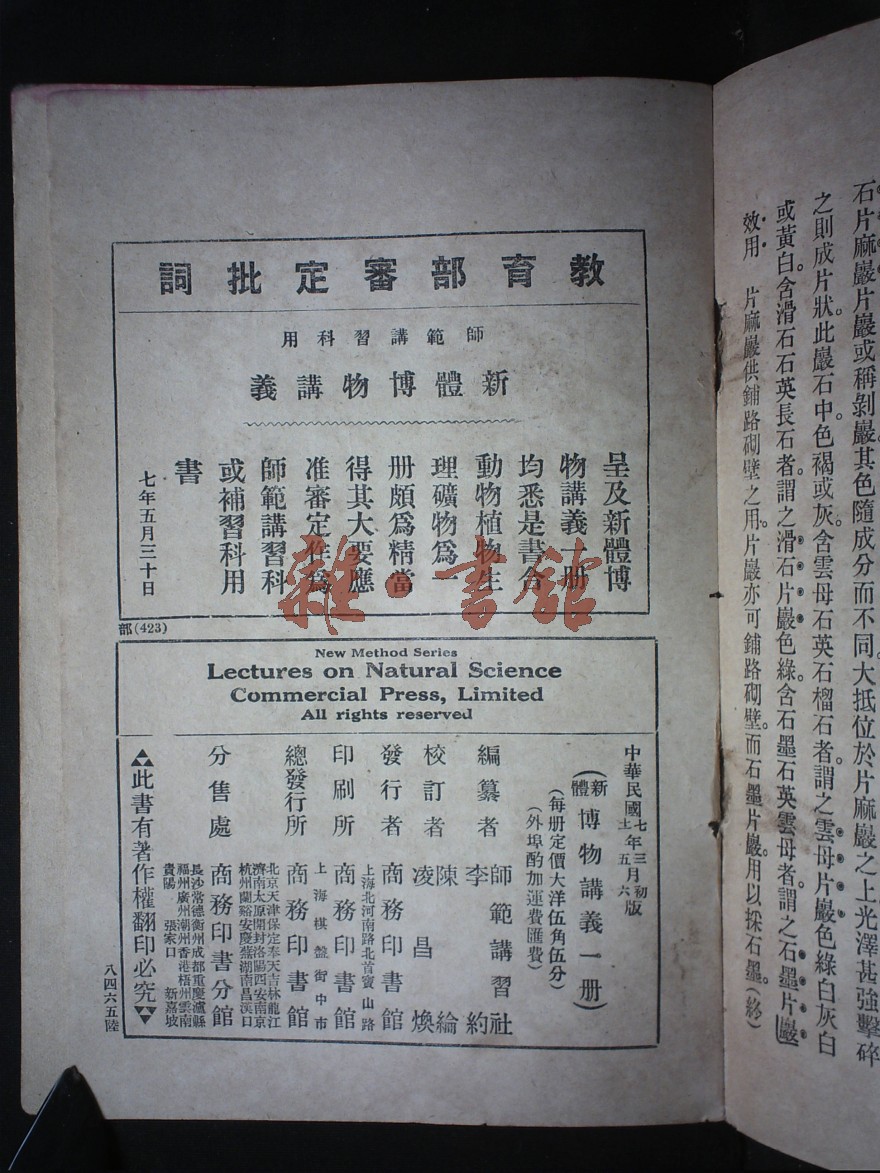 石片麻巖片巖或稱剝巖其色隨成分而不同大抵位於片麻巖之上光澤甚強擊碎
之則成片狀此巖石中色褐或灰含雲母石英石榴石者謂之雲母片巖色綠白灰白
或黃白含滑石石英長石者謂之滑石片巖色綠含石墨石英雲母者謂之石墨片巖
效用 片麻巖供鋪路砌壁之用片巖亦可鋪路砌壁而石墨片巖用以採石墨(終)
教育部審定批詞
師範講習科用
新體博物講義
呈及新體博
物講義一册
均悉是書合
動物植物生
理礦物為一
册頗為精當
得其大要應
准審定作為
師範講習科
或補習科用
書
七年五月三十日
部(423)
New Method Series
Lectures on Natural Science
Commercial Press, Limited
All rights reserved
中華民國七年三月初版
十一年五月六版
(新體)博物講義一册)
(每册定價大洋伍角伍分)
(外埠酌加運費匯費)
編纂者 師範講習社
李約
校訂者 陳綸
凌昌煥
發行者 商務印書館
上海北河南路北首寶山路
印刷所 商務印書館
上海棋盤街中市
總發行所 商務印書館
北京天津保定奉天吉林龍江
濟南太原開封洛陽西安南京
杭州蘭谿安慶蕪湖南昌漢口
分售處 商務印書分館
長沙常德衡州成都重慶瀘縣
福州廣州潮州香港梧州雲南
貴陽 張家口 新嘉坡
此書有著作權翻印必究
八四六五陸
雜·書館